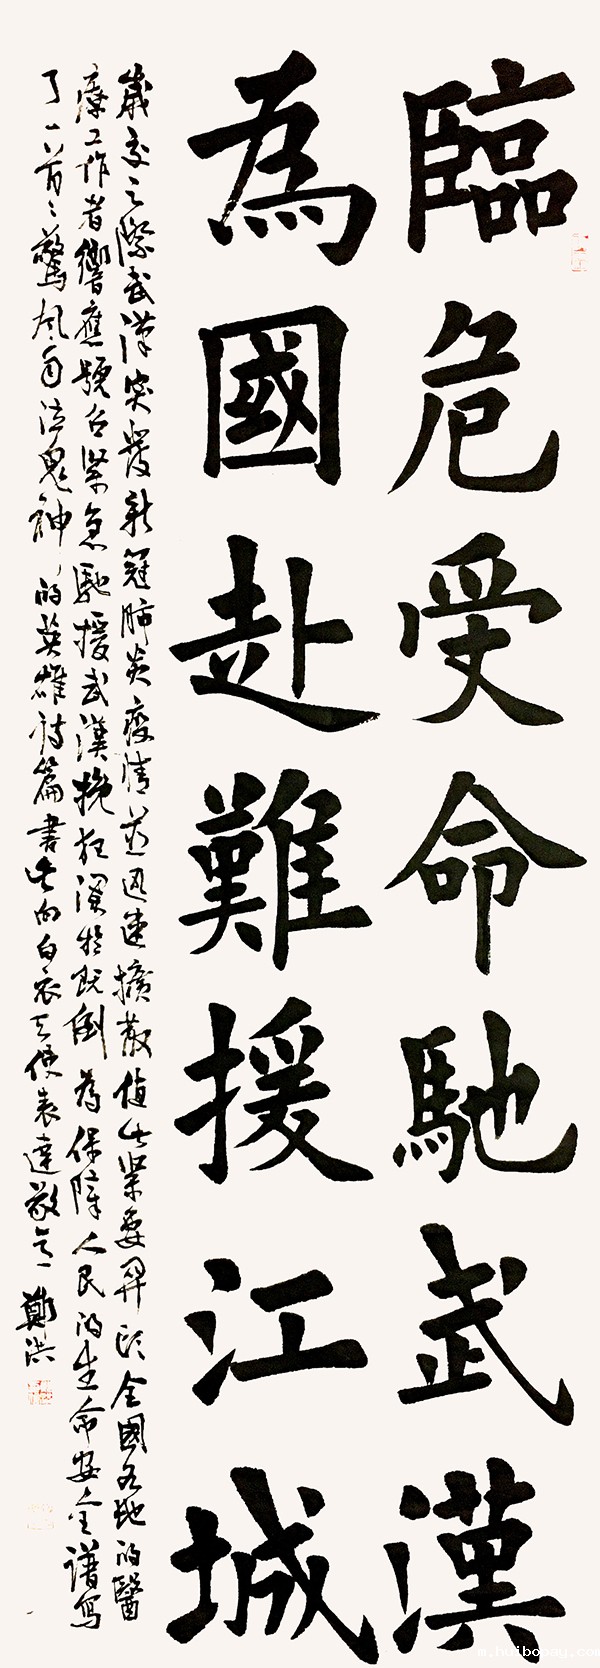 臨危受命馳武漢
為國赴難援江城
歲交之際武漢突發新冠肺炎疫情並迅速擴散值此緊要關頭全國各地的醫
療工作者響應號召緊急馳援武漢挽狂瀾於既倒為保障人民的生命安全譜寫
了一首首驚風雨泣鬼神的英雄詩篇書此向白衣天使表達敬意 鄭洪